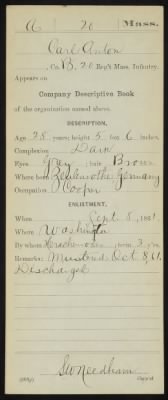 A 20 Mass.
Carl Anton
, Co. B, 20 Reg't Mass. Infantry.
Appears on
Company Descriptive Book
of the organization named above.
DESCRIPTION.
Age 28 years; height 5 feet 6 inches.
Complexion Dark
Eyes Gray; hair Brown
Where born Germany
Occupation Cooper
ENLISTMENT.
When Sept 8, 1861.
Where Washington
By whom ; term 3 y'rs.
Remarks: Mustered Oct 8, 61.
Discharged
S W Needham
Copyist